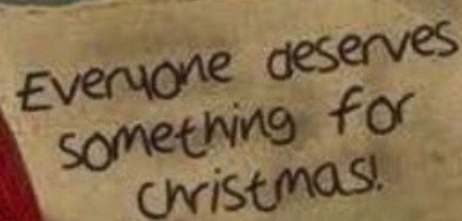 Everyone deserves
something for
christmas!